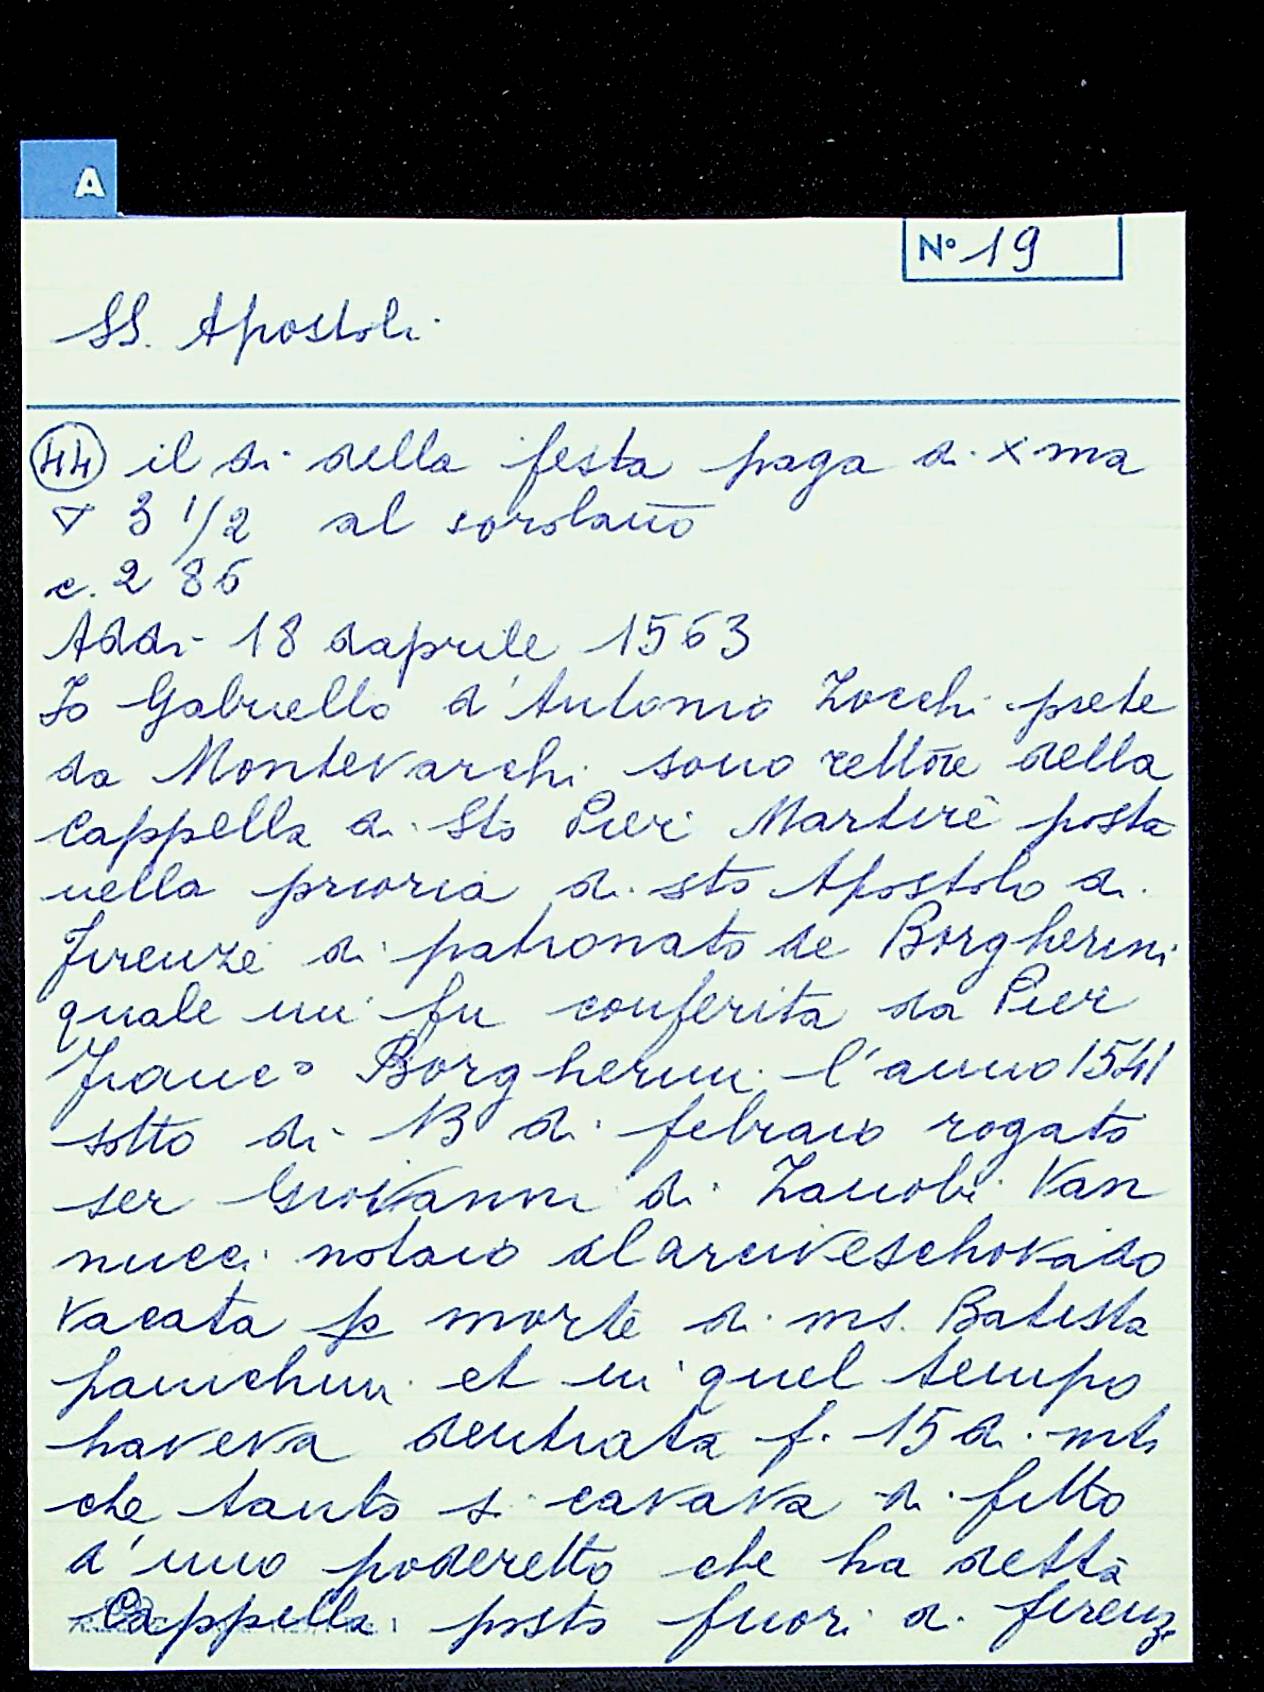 A
N° 19
SS. Apostoli
44 il di della festa paga di xma
▽ 3 1/2 al
c. 286
Addi 18 daprile 1563
Io Gabriello d'Antonio Zocchi prete
da Montevarchi sono rettore della
cappella di Sto Pier Martire posta
nella prioria di sto Apostolo di
Firenze di patronato de Borgherini
quale mi fu conferita da Pier
Franc° Borgherini l'anno 1541
sotto di 13 di febraio rogato
ser Giovanni di Zanobi Van
nucci notaio al arciveschovado
vacata p morte di ms. Batista
panichini et in quel tempo
haveva dentrata f. 15 di mta
che tanto si cavava di fitto
d'uno poderetto che ha detta
Cappella posto fuori di firenze